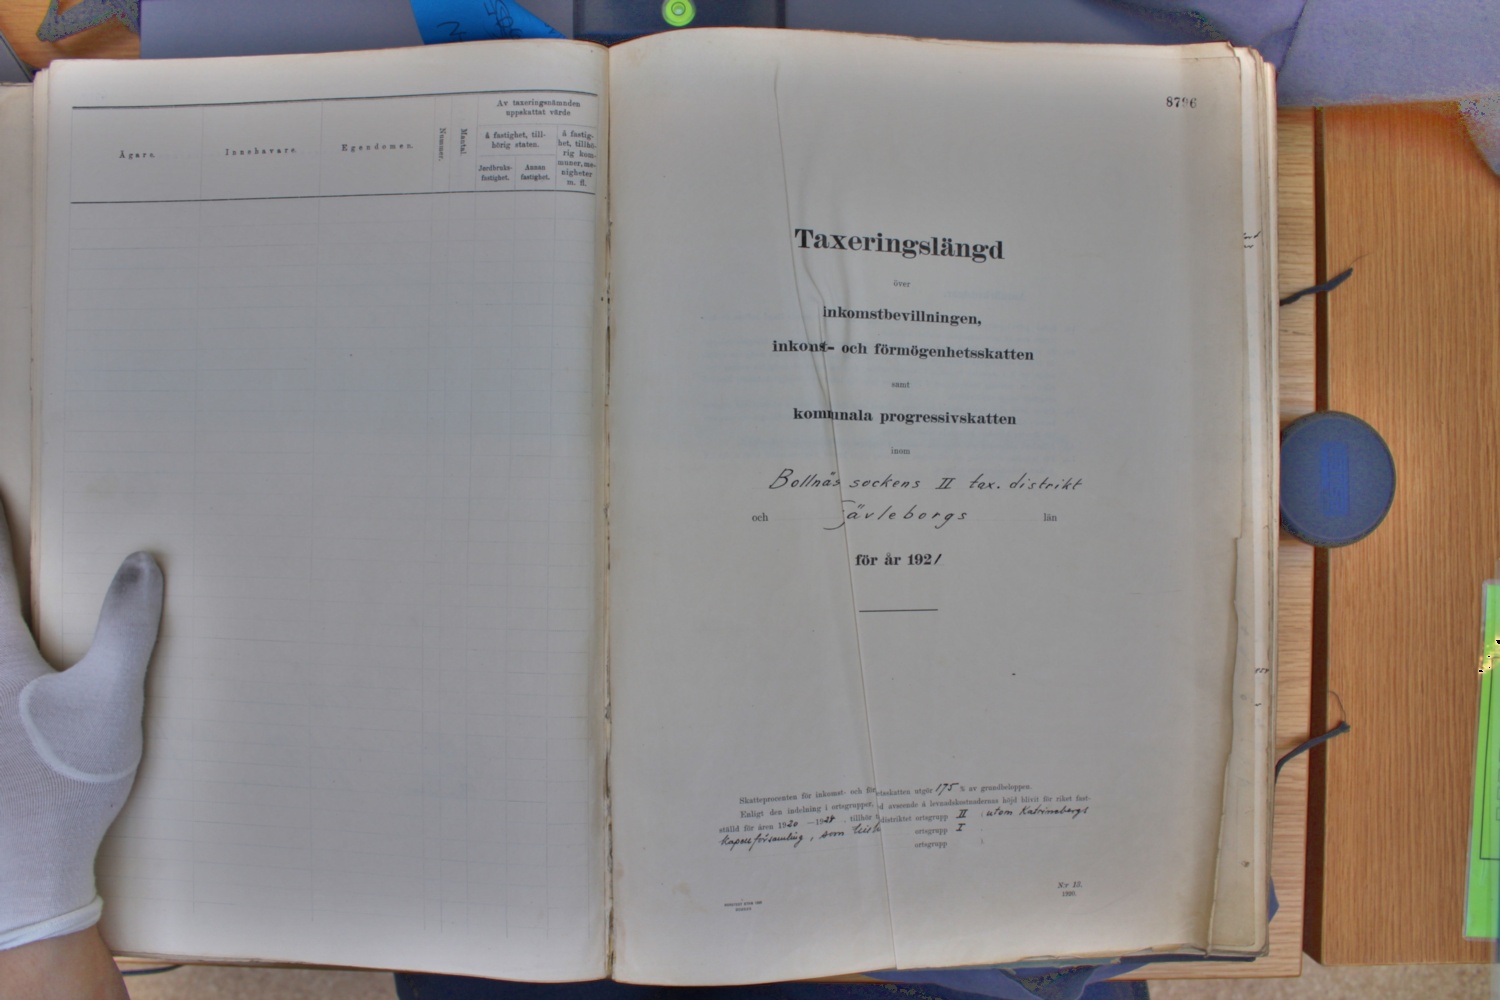 Av taxeringsnämnden
uppskattat värde
Ägare.
Innehavare.
Egendomen.
Nummer.
Mantal.
å fastighet, till-
hörig staten.
Jordbruks-
fastighet.
Annan
fastighet.
å fastig-
het, tillhö-
rig kom-
muner, me-
nigheter
m. fl.
8796
Taxeringslängd
över
inkomstbevillningen,
inkomst- och förmögenhetsskatten
samt
kommunala progressivskatten
inom
Bollnäs sockens II tax. distrikt
och Gävleborgs län
för år 1921
Skatteprocenten för inkomst- och för etsskatten utgör 175 % av grundbeloppen.
Enligt den indelning i ortsgrupper, d avseende å levnadskostnadernas höjd blivit för riket fast-
ställd för åren 1920 —1924 tillhör distriktet ortsgrupp II utom Katrinebergs
kapellförsamling, som ortsgrupp I
ortsgrupp
N:r 12.
1920.